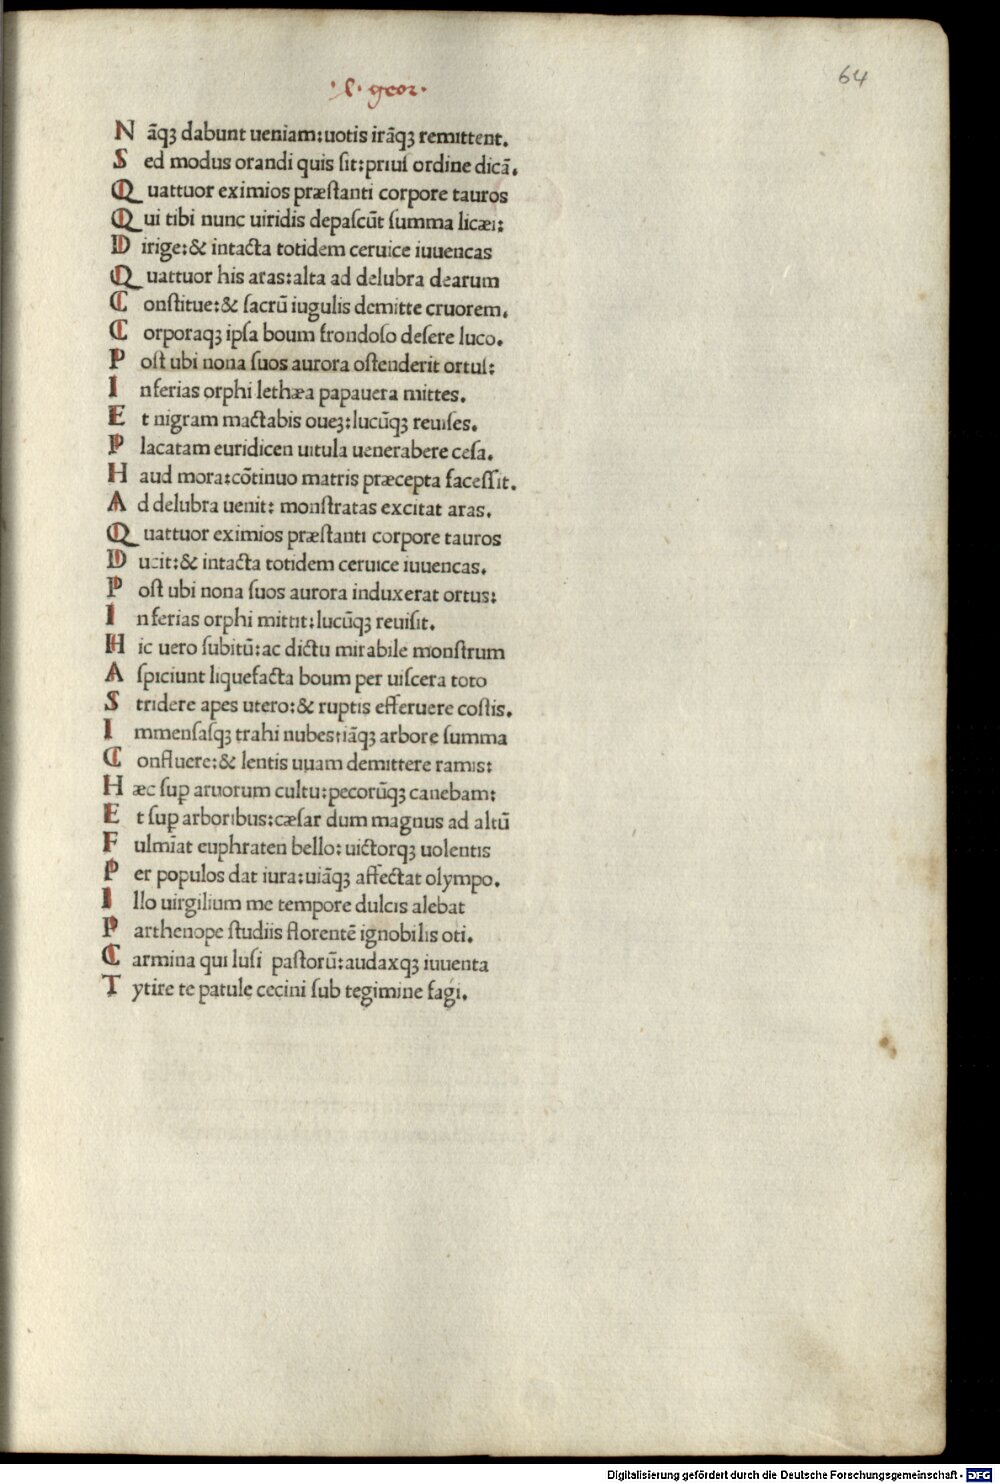 ·l· geor·
64
N āqȝ dabunt ueniam:uotis irāqȝ remittent.
S ed modus orandi quis ſit:priuſ ordine dicā.
Q uattuor eximios præſtanti corpore tauros
Q ui tibi nunc uiridis depaſcūt ſumma licæi:
D irige:& intacta totidem ceruice iuuencas
Q uattuor his aras:alta ad delubra dearum
C onſtitue:& ſacrū iugulis demitte cruorem.
C orporaqȝ ipſa boum frondoſo deſere luco.
P oſt ubi nona ſuos aurora oſtenderit ortuſ:
I nferias orphi lethæa papauera mittes.
E t nigram mactabis oueȝ:lucūqȝ reuiſes.
P lacatam euridicen uitula uenerabere ceſa.
H aud mora:cōtinuo matris præcepta faceſſit.
A d delubra uenit: monſtratas excitat aras.
Q uattuor eximios præſtanti corpore tauros
D ucit:& intacta totidem ceruice iuuencas.
P oſt ubi nona ſuos aurora induxerat ortus:
I nferias orphi mittit:lucūqȝ reuiſit.
H ic uero ſubitū:ac dictu mirabile monſtrum
A ſpiciunt liquefacta boum per uiſcera toto
S tridere apes utero:& ruptis efferuere coſtis.
I mmenſaſqȝ trahi nubes:iāqȝ arbore ſumma
C onfluere:& lentis uuam demittere ramis:
H æc ſuꝑ aruorum cultu:pecorūqȝ canebam:
E t ſuꝑ arboribus:cæſar dum magnus ad altū
F ulmīat euphraten bello:uictorqȝ uolentis
P er populos dat iura:uiāqȝ affectat olympo.
I llo uirgilium me tempore dulcis alebat
P arthenope ſtudiis florentē ignobilis oti.
C armina qui luſi paſtorū:audaxqȝ iuuenta
T ytire te patule cecini ſub tegimine fagi.
Digitalisierung gefördert durch die Deutsche Forschungsgemeinschaft - DFG